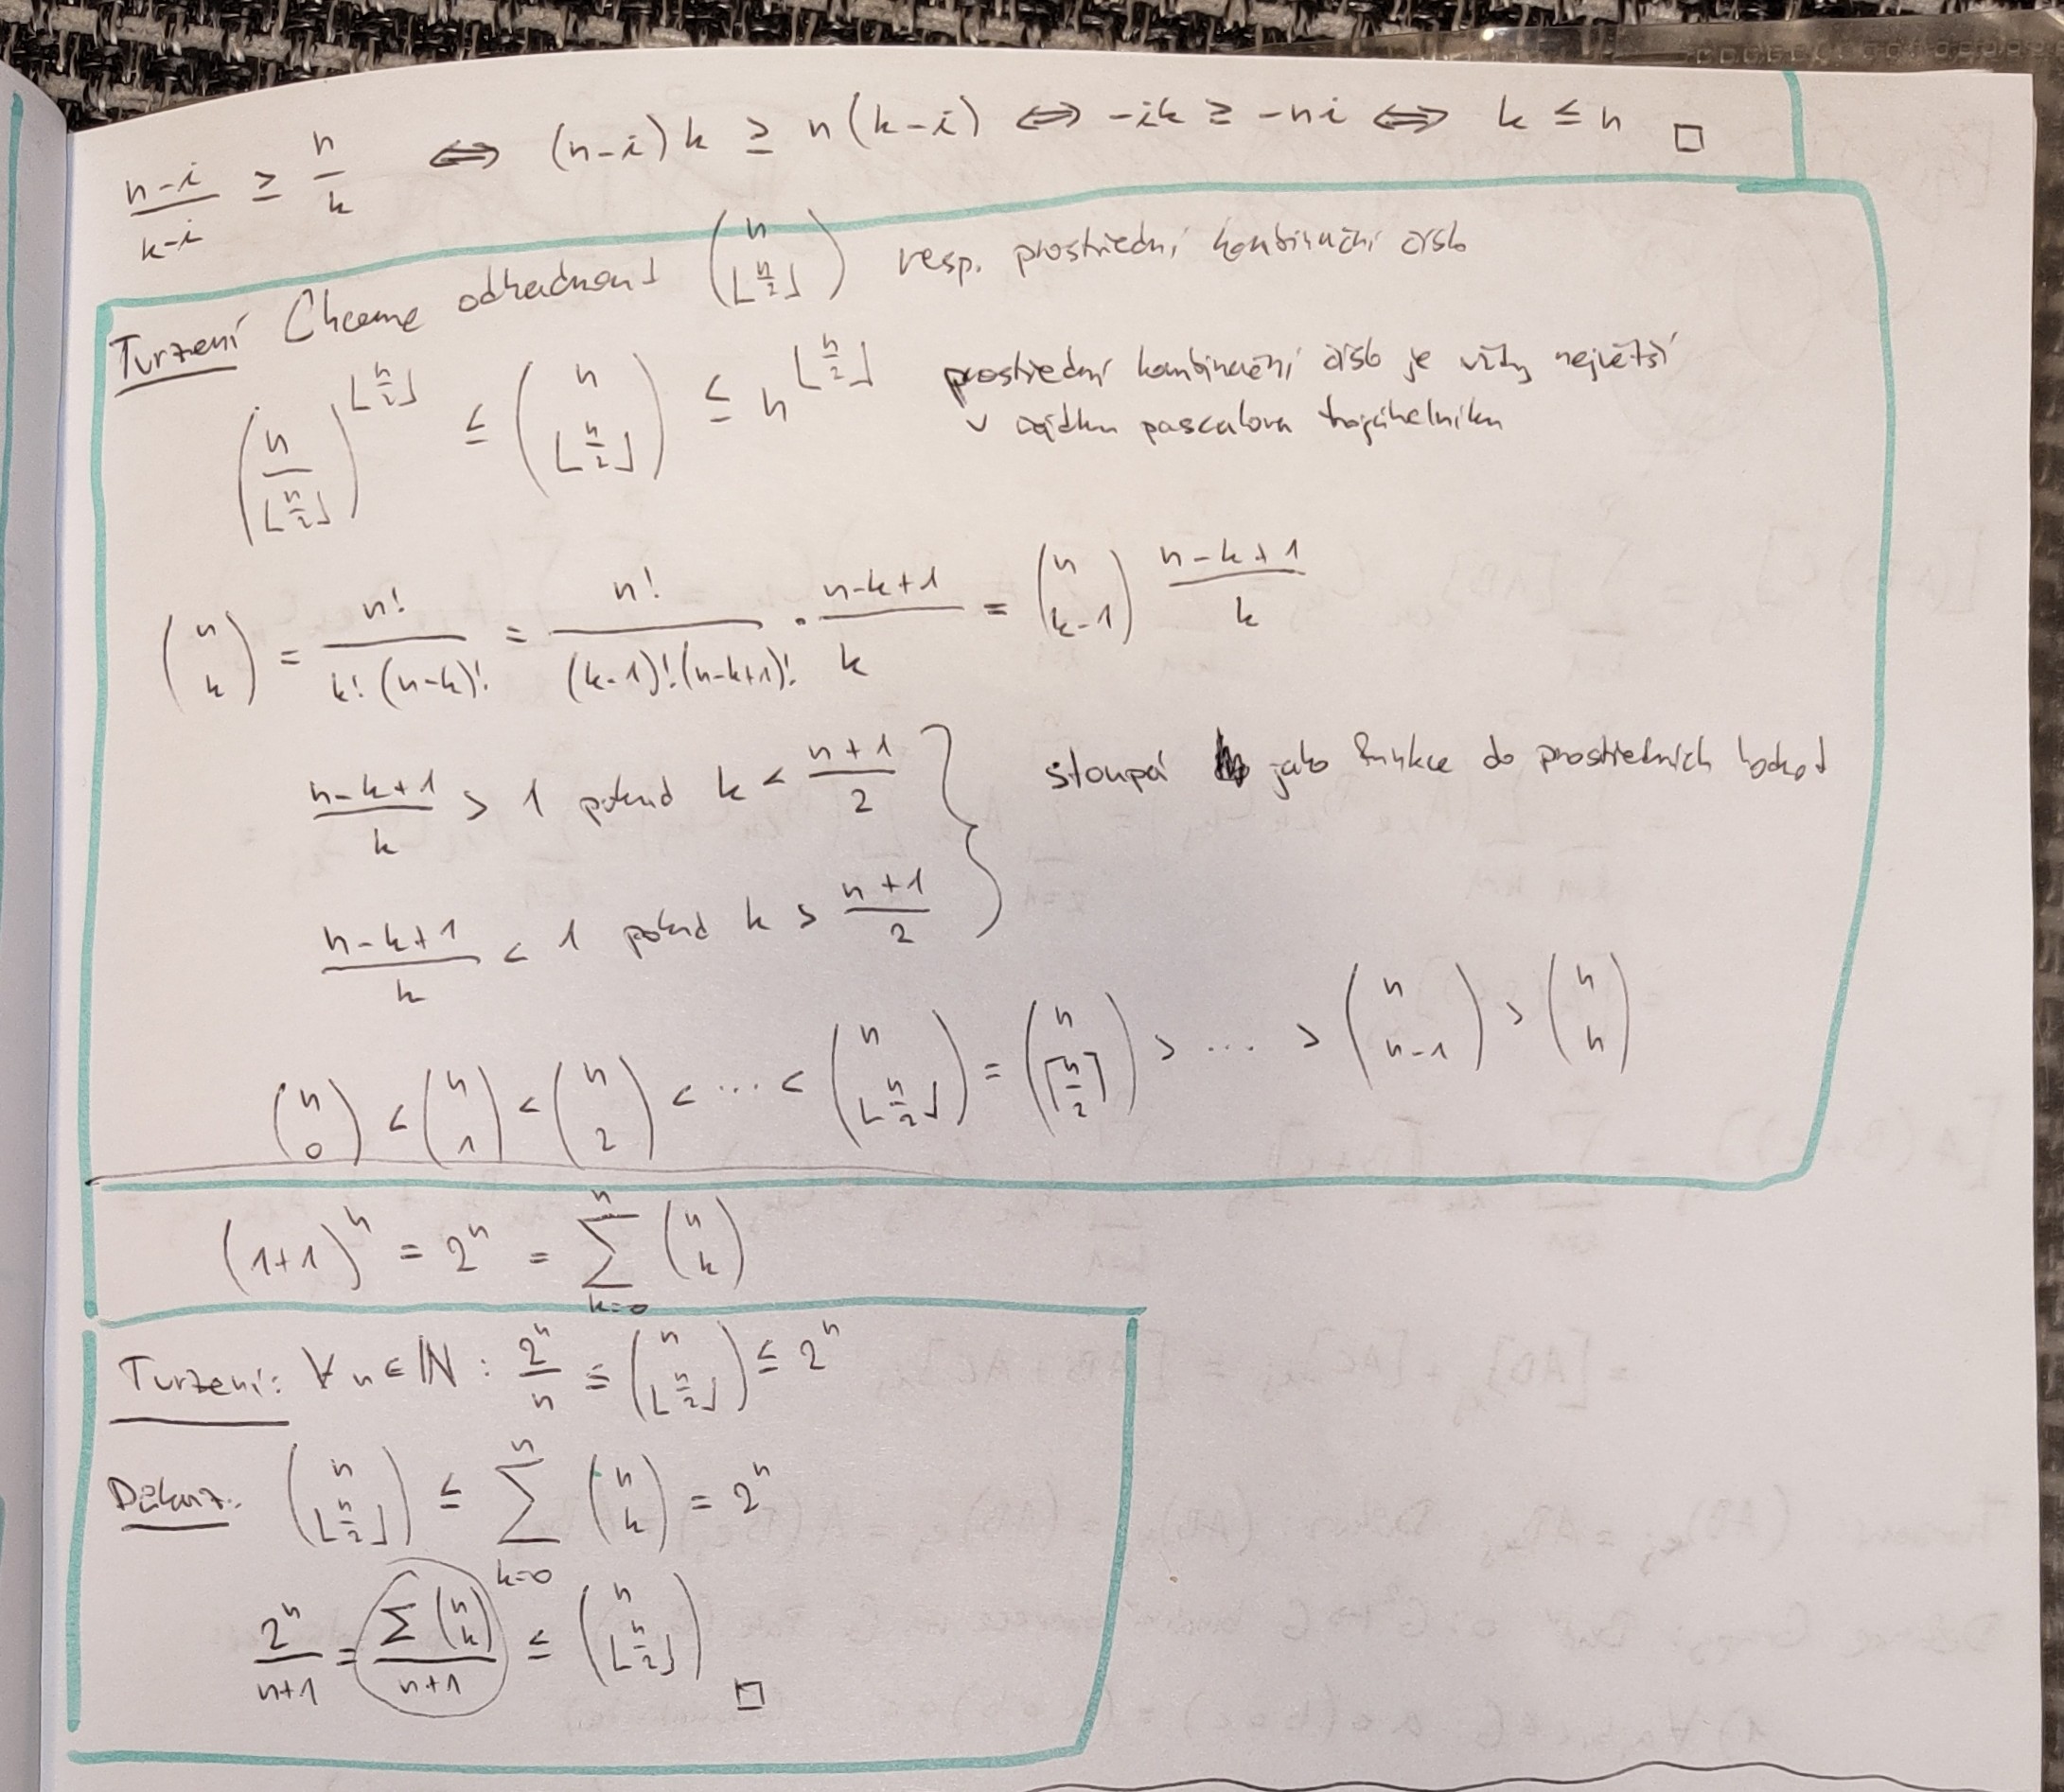 (n-i)/(k-i) ≥ n/k ⇔ (n-i)k ≥ n(k-i) ⇔ -ik ≥ -ni ⇔ k ≤ n □
Tvrzení Chceme odhadnout (n ⌊n/2⌋) resp. prostřední kombinační číslo
(n/⌊n/2⌋)^⌊n/2⌋ ≤ (n ⌊n/2⌋) ≤ n^⌊n/2⌋ prostřední kombinační číslo je vždy největší
v řádku pascalova trojúhelníku
(n k) = n!/(k!(n-k)!) = n!/((k-1)!(n-k+1)!) · (n-k+1)/k = (n k-1) (n-k+1)/k
(n-k+1)/k > 1 pokud k < (n+1)/2
stoupá jako funkce do prostředních hodnot
(n-k+1)/k < 1 pokud k > (n+1)/2
(n 0) < (n 1) < (n 2) < ... < (n ⌊n/2⌋) = (n ⌈n/2⌉) > ... > (n n-1) > (n n)
(1+1)^n = 2^n = ∑_{k=0}^{n} (n k)
Tvrzení: ∀n∈ℕ: 2^n/n ≤ (n ⌊n/2⌋) ≤ 2^n
Důkaz: (n ⌊n/2⌋) ≤ ∑_{k=0}^{n} (n k) = 2^n
2^n/(n+1) = ∑(n k)/(n+1) ≤ (n ⌊n/2⌋) □